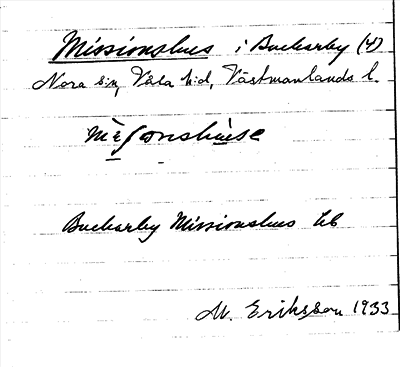 Missionshus i Buckarby (4)
Nora sn, Våla hd, Västmanlands l.
Buckarby Missionshus
M. Eriksson 1933